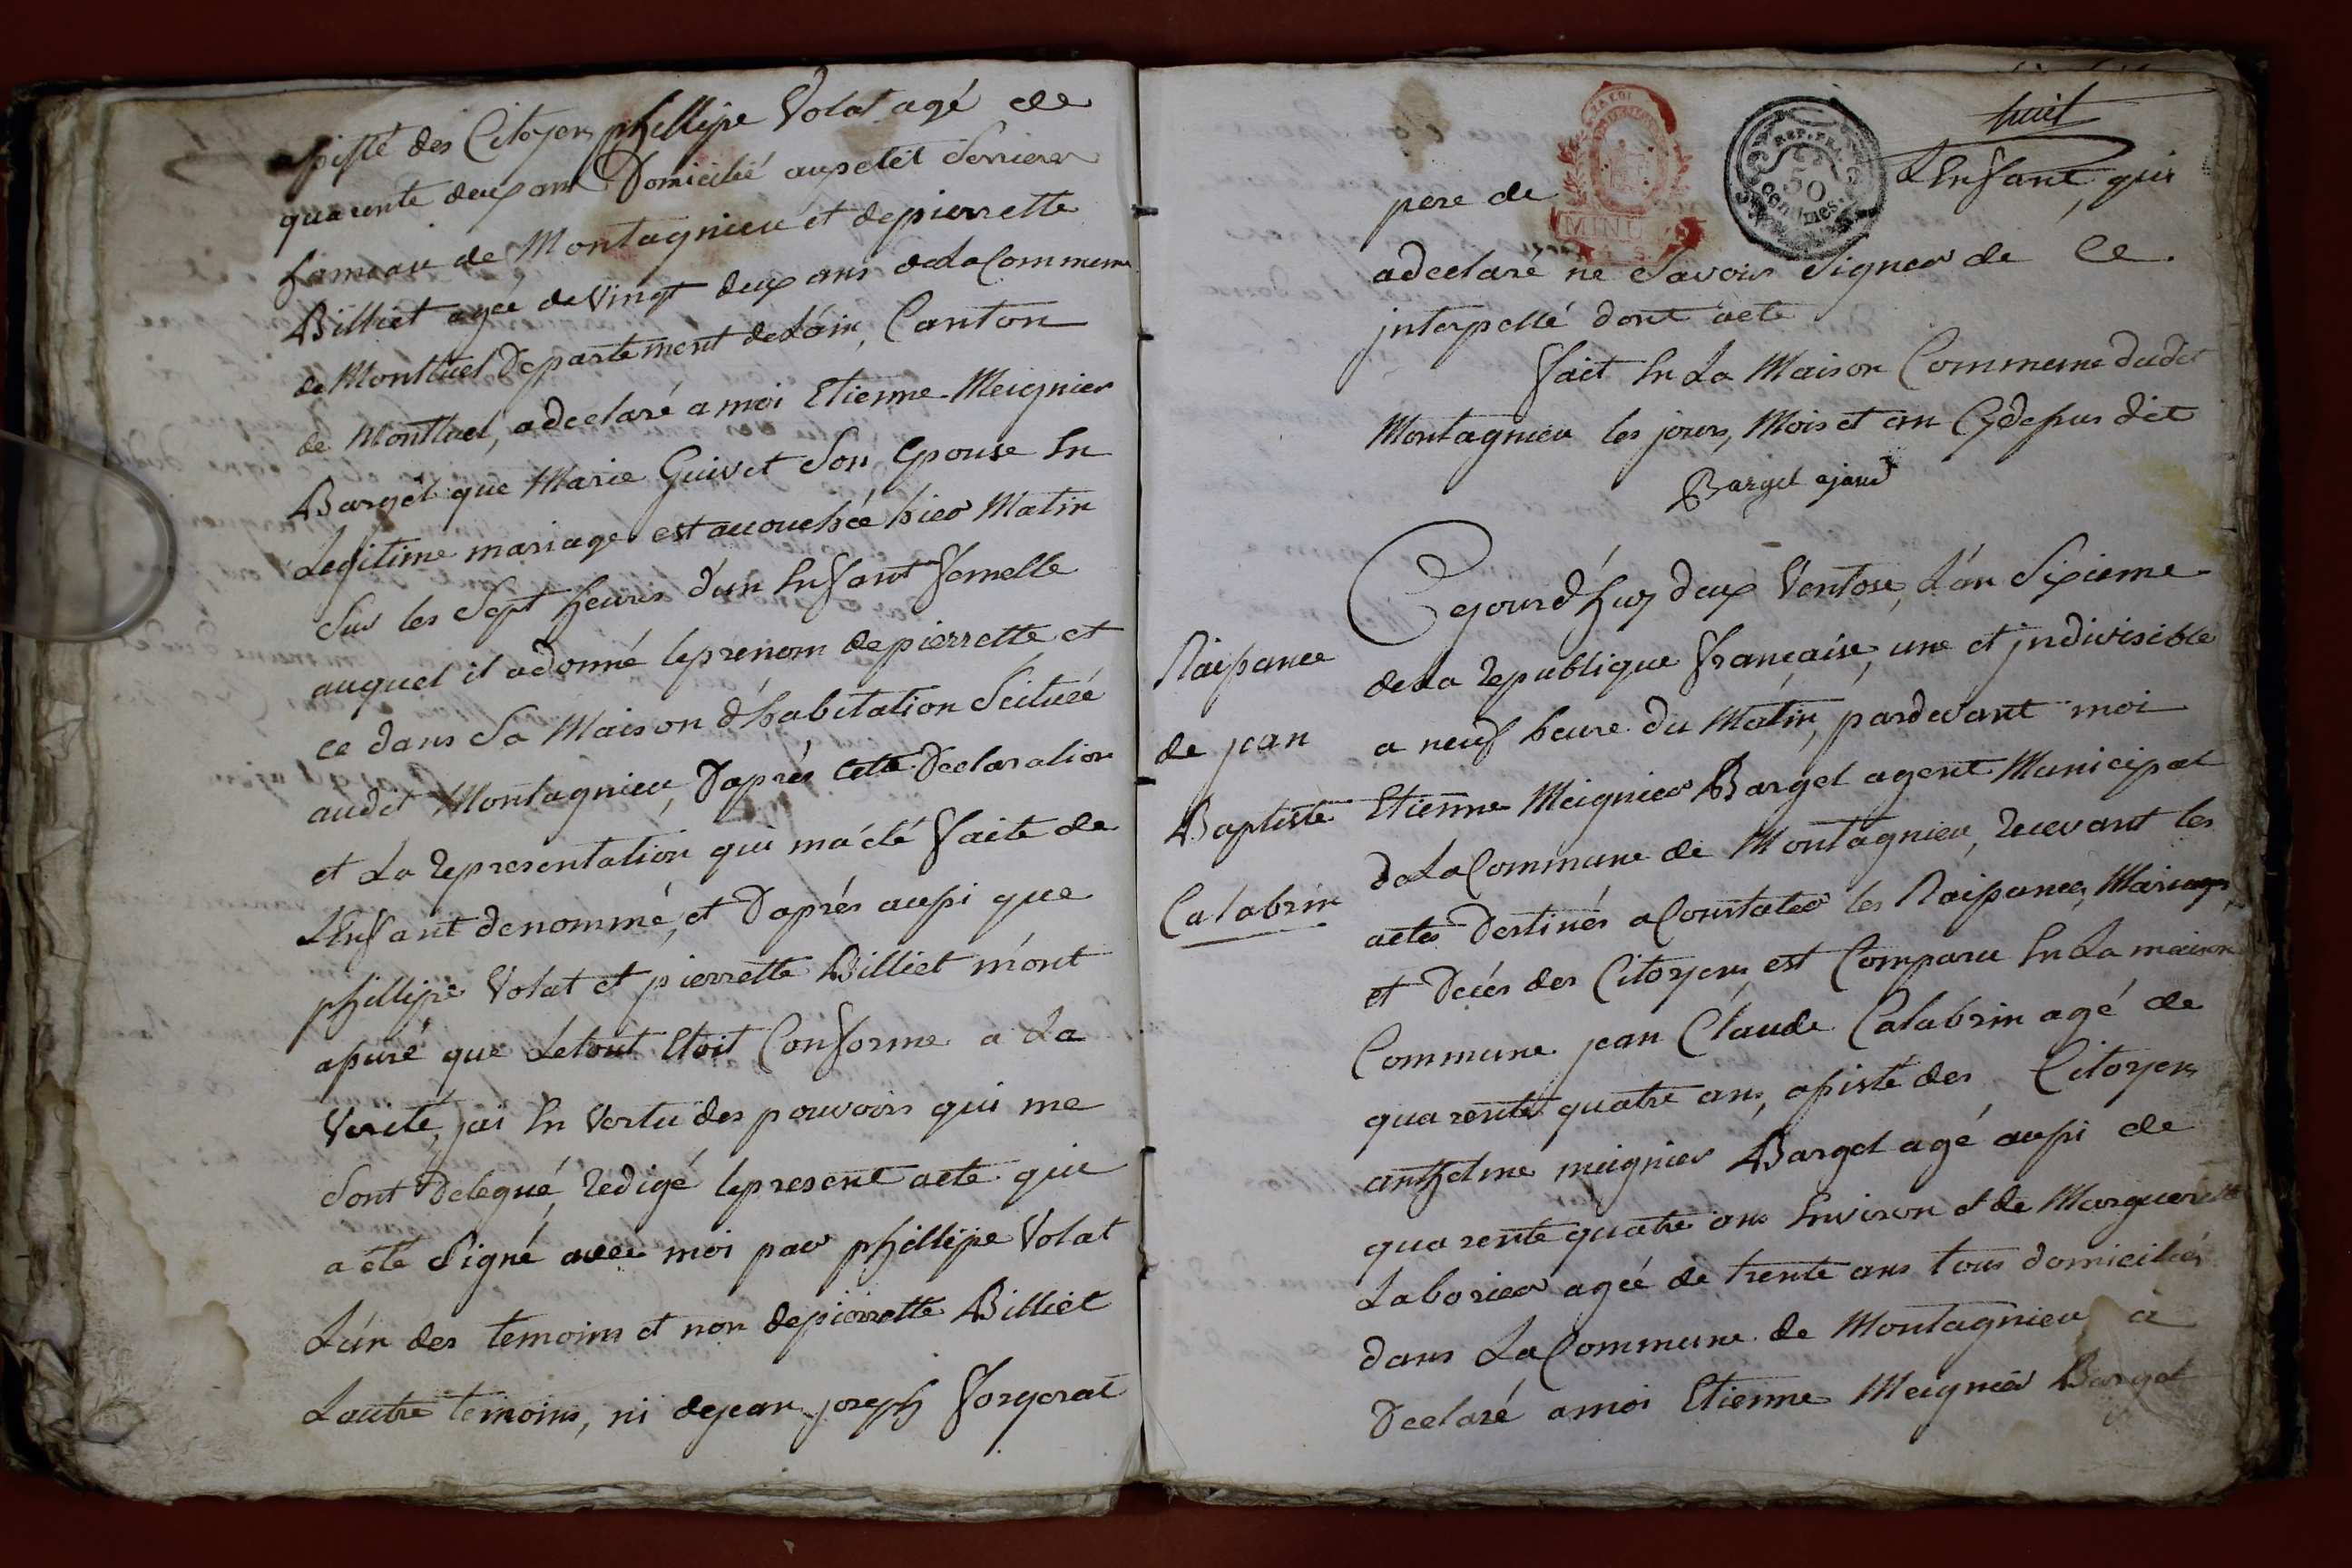 apisté des Citoyens phillipe Volat agé de
quarente deux ans Domicilié aupetit Serriere
hameau de Montagnieu et depierrette
Billiet agée de Vingt deux ans dela Commune
de Montluel Departement deLáin, Canton
de Montluel, adeclaré a moi Etienne Meignier
Bargel que Marie Guivet Son Epouse En
Legitime mariage est accouchée hier Matin
Sur les Sept heures d'un Enfant femelle
auquel il adonné leprenom depierrette et
ce dans Sa Maison d'habitation Scituée
audit Montagnieu, D'aprés cette Declaration
et La representation qui má été faite de
LEnfant denommé, et D'aprés aussi que
phillipe Volat et pierrette Billiet m'ont
assuré que Letout Etoit Conforme a La
Verité, jai En Vertu des pouvoirs qui me
Sont Delegué, redigé lepresent acte qui
a été Signé avec moi par phillipe Volat
Lún des temoins et non depierrette Billiet
Lautre temoins, ni dejean joseph Forgerat
huit
LA LOI
MINUTES
REP. FRA.
50
Centimes.
pere de LEnfant, qui
adeclaré ne Savoir Signer de Ce
jnterpellé dont acte
fait En La Maison Commune dudit
Montagnieu les jours, Mois et an Cydessus dit
Bargel ajant
Naissance
de jean
Baptiste
Calabrin
Cejourd'huy deux Ventose, L'an Sixieme
dela republique française, une et jndivisible
a neuf heure du Matin, pardevant moi
Etienne Meignier Bargel agent Municipal
deLaCommune de Montagnieu, recevant les
actes Destinés aConstater les Naissances, Mariages,
et Decés des Citoyens, est Comparu En La maison
Commune jean Claude Calabrin agé de
quarente quatre ans, apisté des Citoyens
anthelme meignier Bargel agé aussi de
quarente quatre ans Environ et de Marguerite
Laborier agée de trente ans tous domiciliés
dans LaCommune de Montagnieu à
Declaré amoi Etienne Meignier Bargel